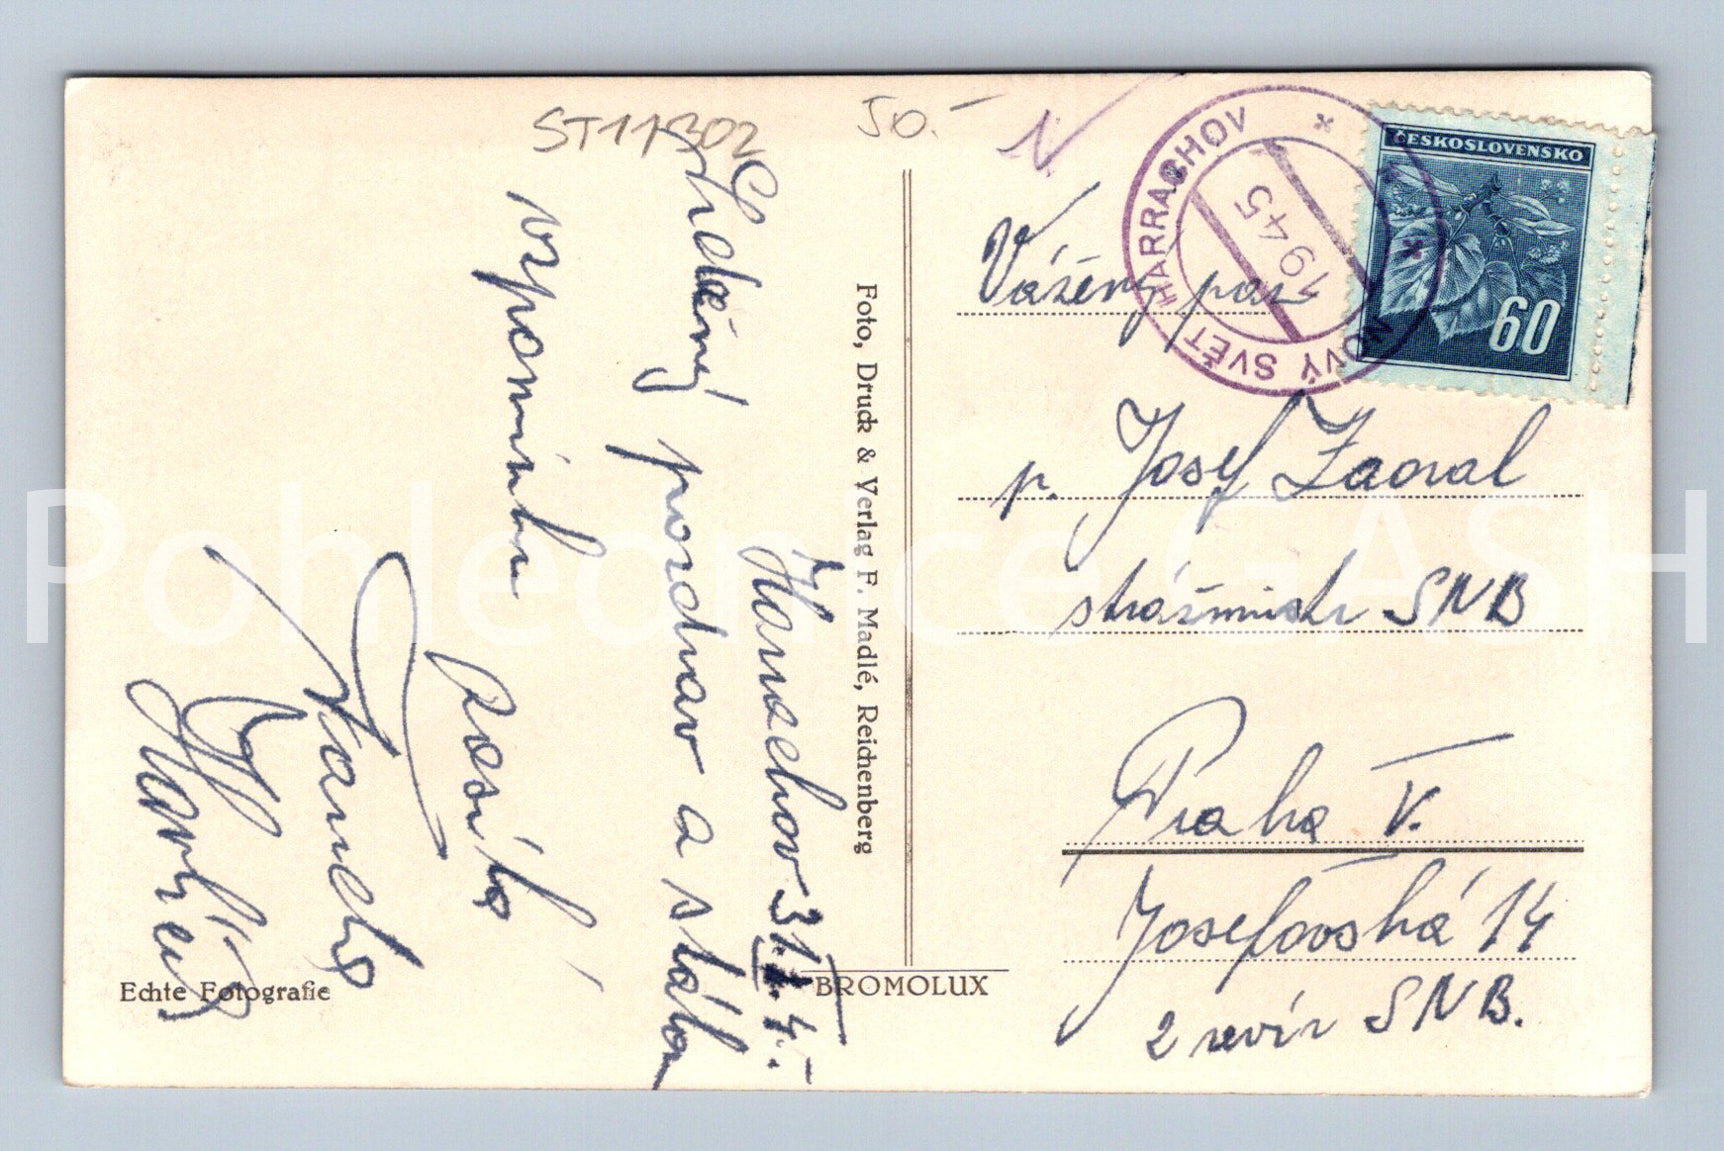 ST11302
50.-
Harrachov 31/I. 45.
Srdečný pozdrav a stálou
vzpomínku
posílá
Fotо, Druck & Verlag F. Madlé, Reichenberg
Echte Fotografie
BROMOLUX
HARRACHOV
NOVÝ SVĚT
1945
ČESKOSLOVENSKO
60
Vážený pan
p. Josef Zaoral
strážmistr SNB
Praha V.
Josefovská 14
2 revír SNB.
Pohlednice GASH